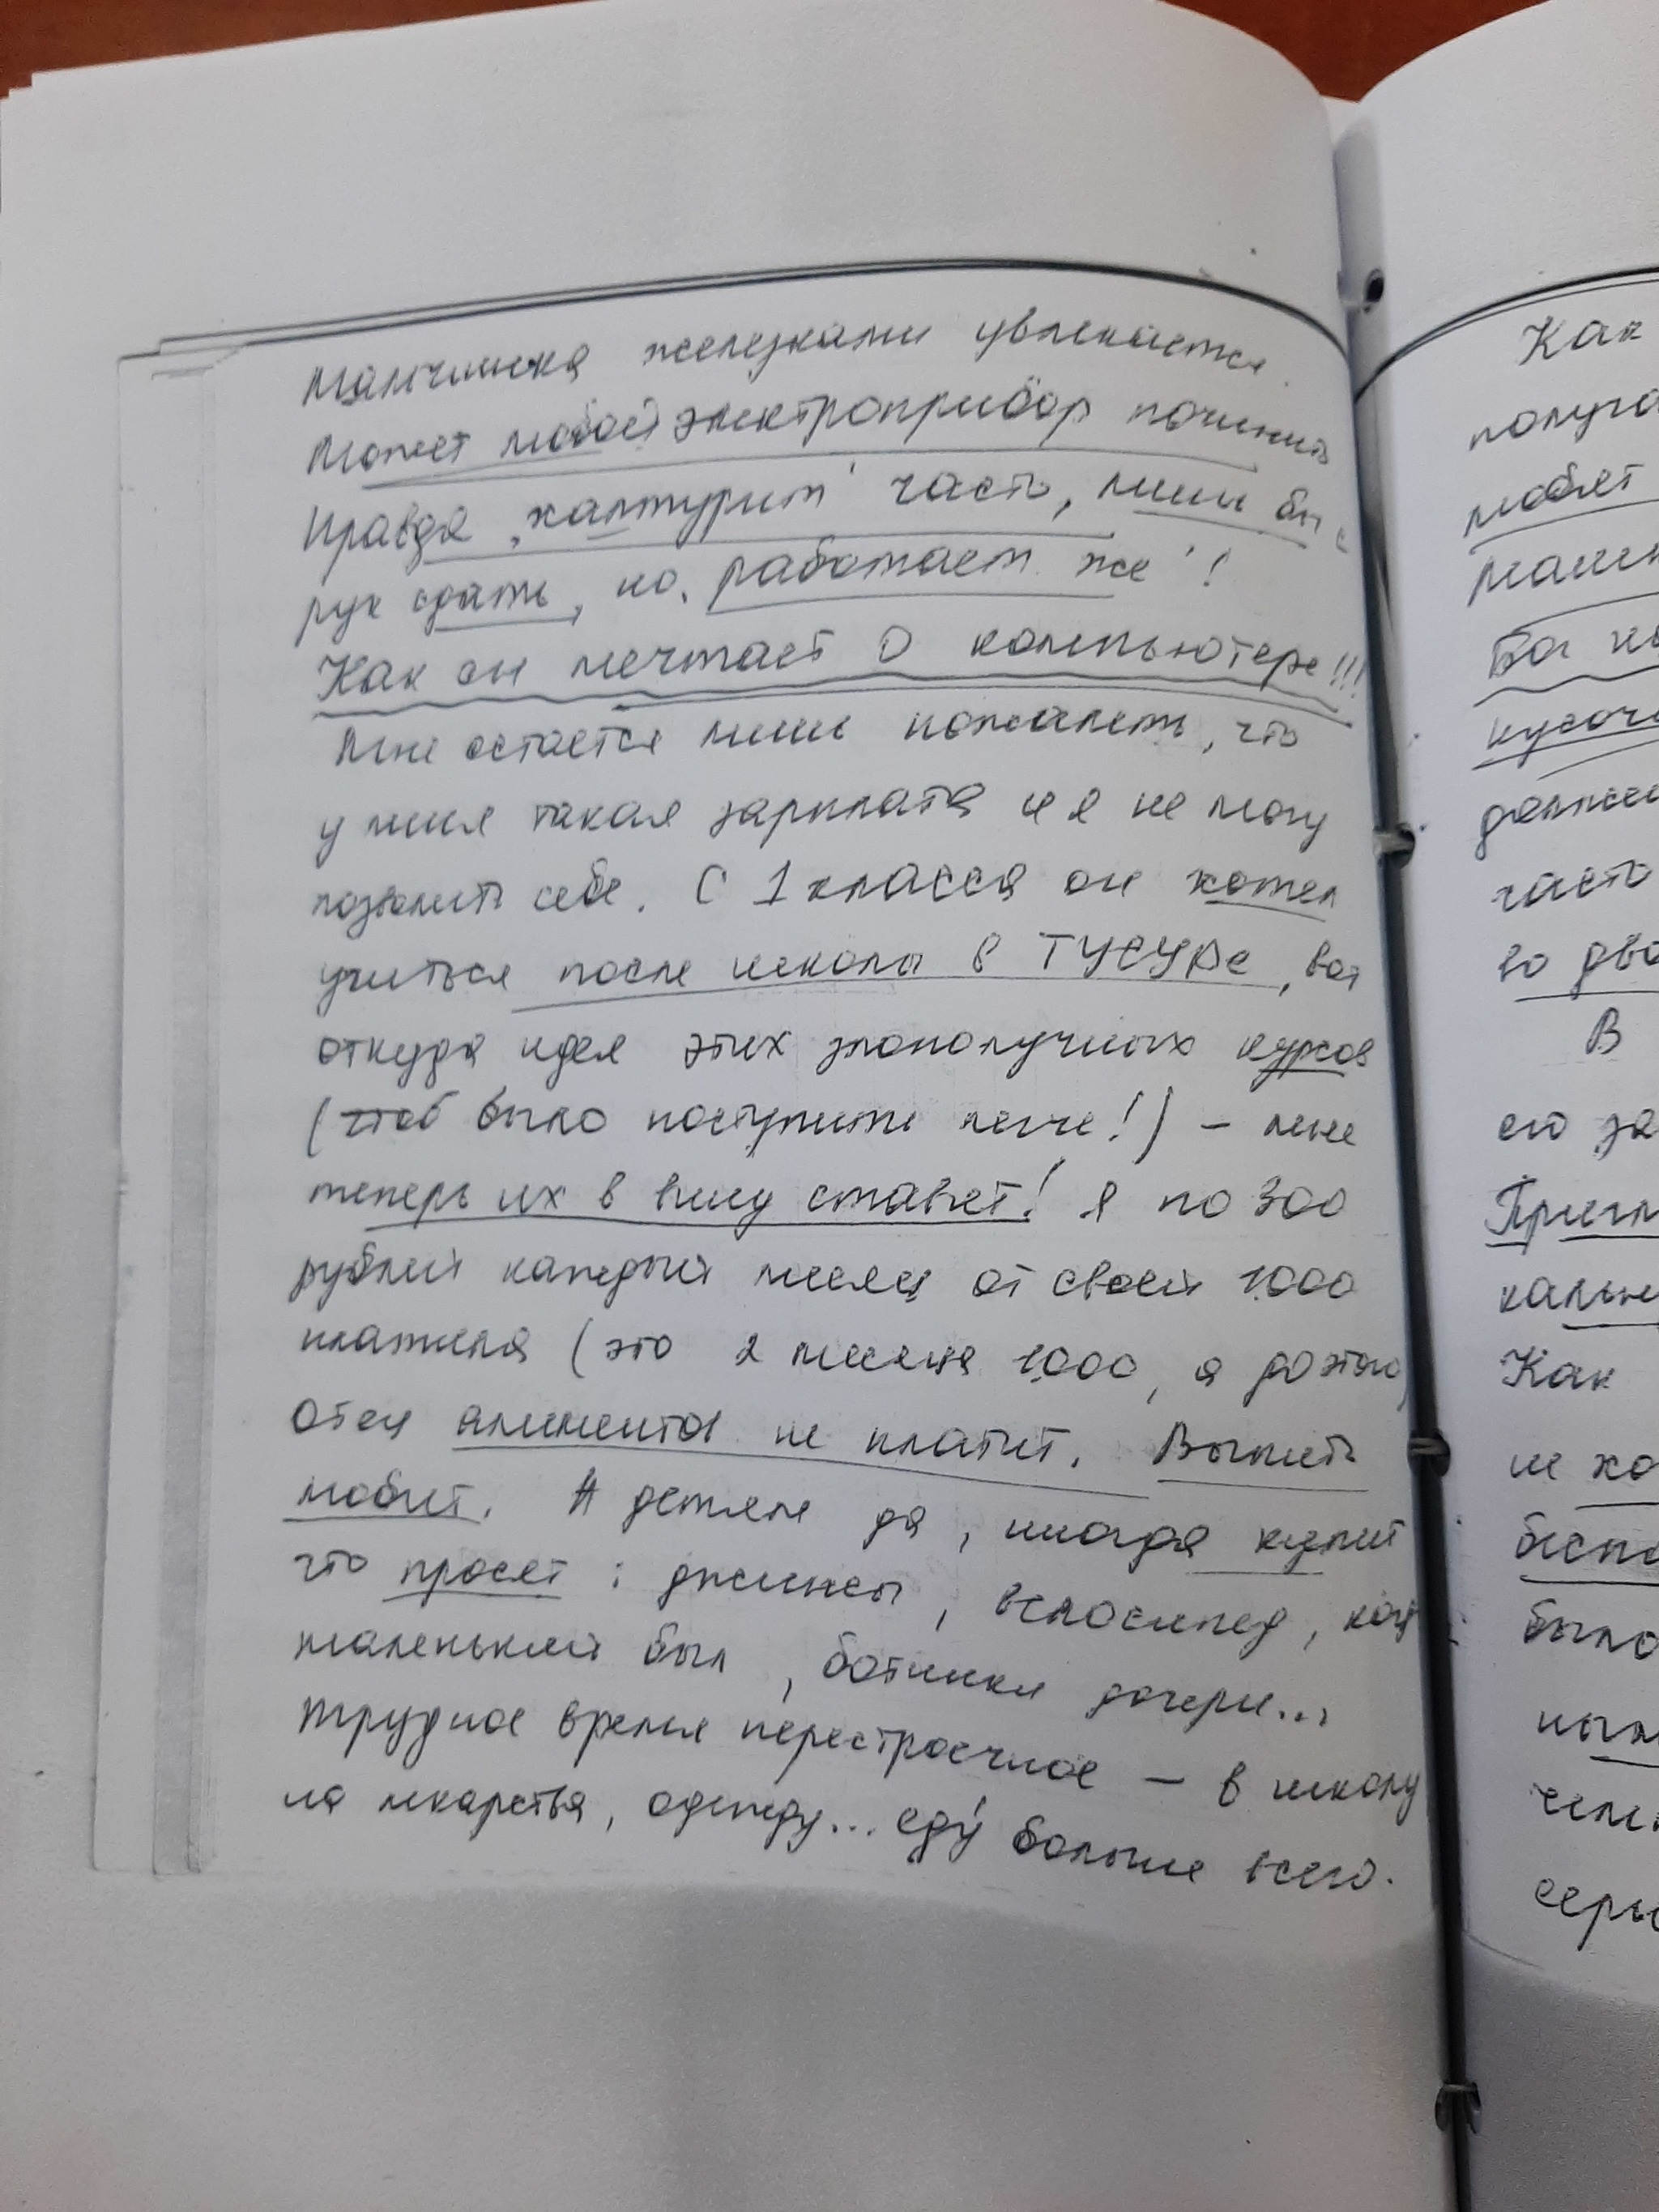 Мальчишка железками увлекается.
Может любой электроприбор починить
Правда „халтурит" часто, лишь бы с
рук сдать, но „работает же"!
Как он мечтает о компьютере!!!
Мне остается лишь пожалеть, что
у меня такая зарплата и я не могу
позволить себе. С 1 класса он хотел
учиться после школы в ТУСУРе, вот
откуда идея этих злополучных курсов
(чтоб было поступить легче!) – мне
теперь их в вину ставят! Я по 300
рублей каждый месяц от своей 1000
платила (это 2 месяца 1000, а до этого)
Отец алименты не платит. Выпить
любит. А детям да, иногда купит
что просят: джинсы, велосипед, когд
маленький был, ботинки дочери...
Трудное время перестроечное – в школу
на лекарства, одежду... еду́ больше всего.
Как
получа
любят
Бог
кусочк
должн
часто
во дво
В
его за
Пригл
Как
не хо
было